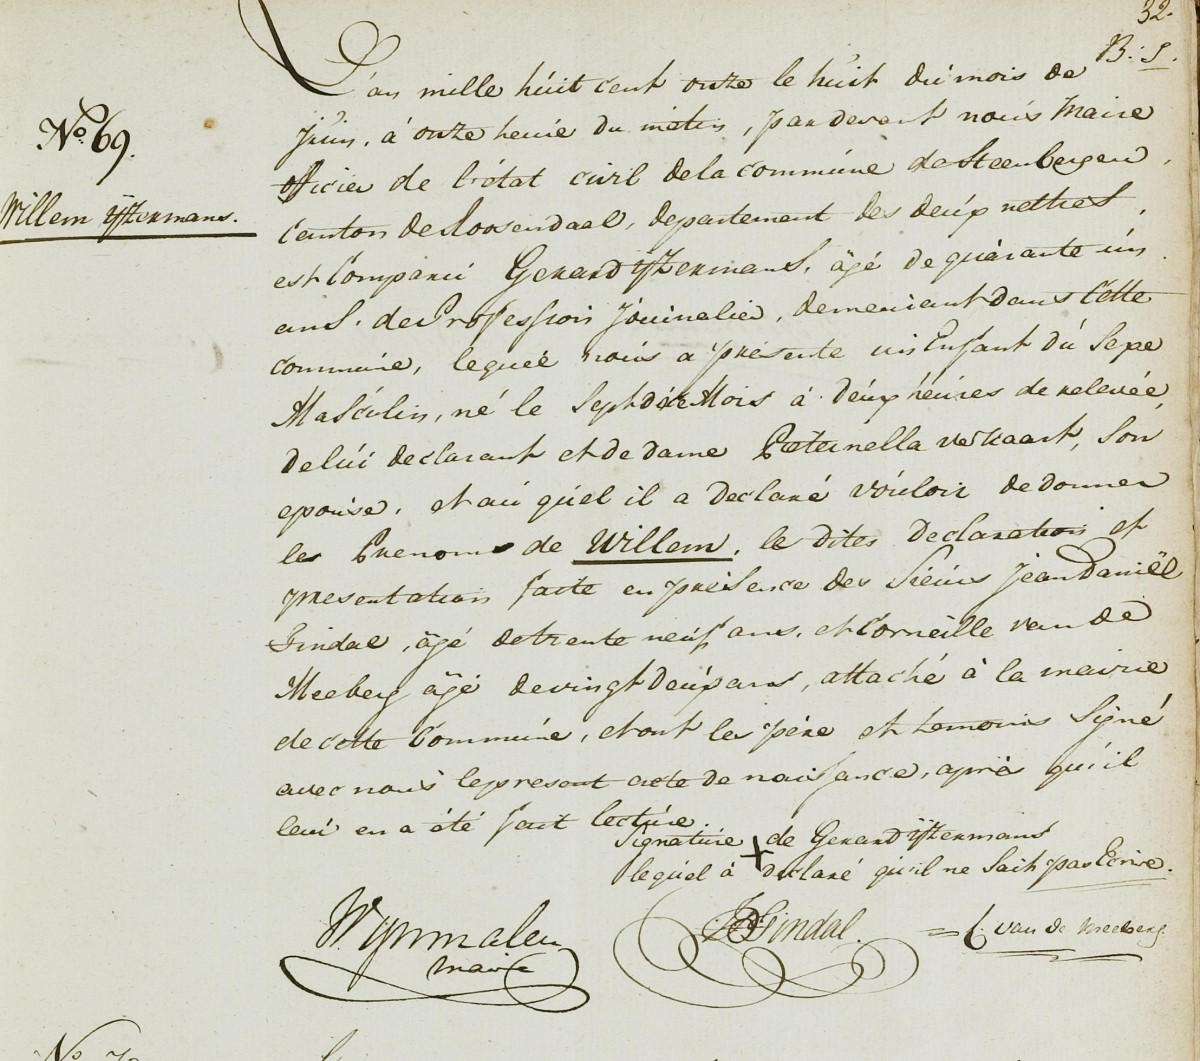 32.
B: S.
No. 69.
Willem ijzermans.
L'an mille húit cent onze le húit dú mois de
Júin, á onze heúre du matin, par devant noús Maire
officier de l'état civil de la commúne de Steenbergen,
Canton de Roosendaal, departement des deúx nethes,
est Comparú Gerard ijzermans, âgé de quarante ún
ans, de Profession Joúrnalier, demeúrant dans Cette
commúne, lequel noús a présenté un Enfant dú Sexe
Masculin, né le Sept de ce Mois à deúx heúres de relevée,
de lúi declarant et de dame Peternella verkaart, Son
epoúse, et aú qúel il a declaré voúloir de donner
les Prenoms de Willem, le dites declaration et
presentation faite en présence des Sieúrs Jean Daniël
Gindal, âgé de trente neúf ans, et Corneille van de
Meeberg âgé de vingt deúx ans, attaché à la mairie
de cette Commúne, et ont les père et temoins Signé
avec noús le present acte de naissance, après qú'il
leúr en a été fait lectúre.
Signatúre de Gerard ijzermans
leqúel à declaré qú'il ne Sait pas Ecrire.
Wijnmalen
maire
JD Gindal.
C. van de Meeberg
No.